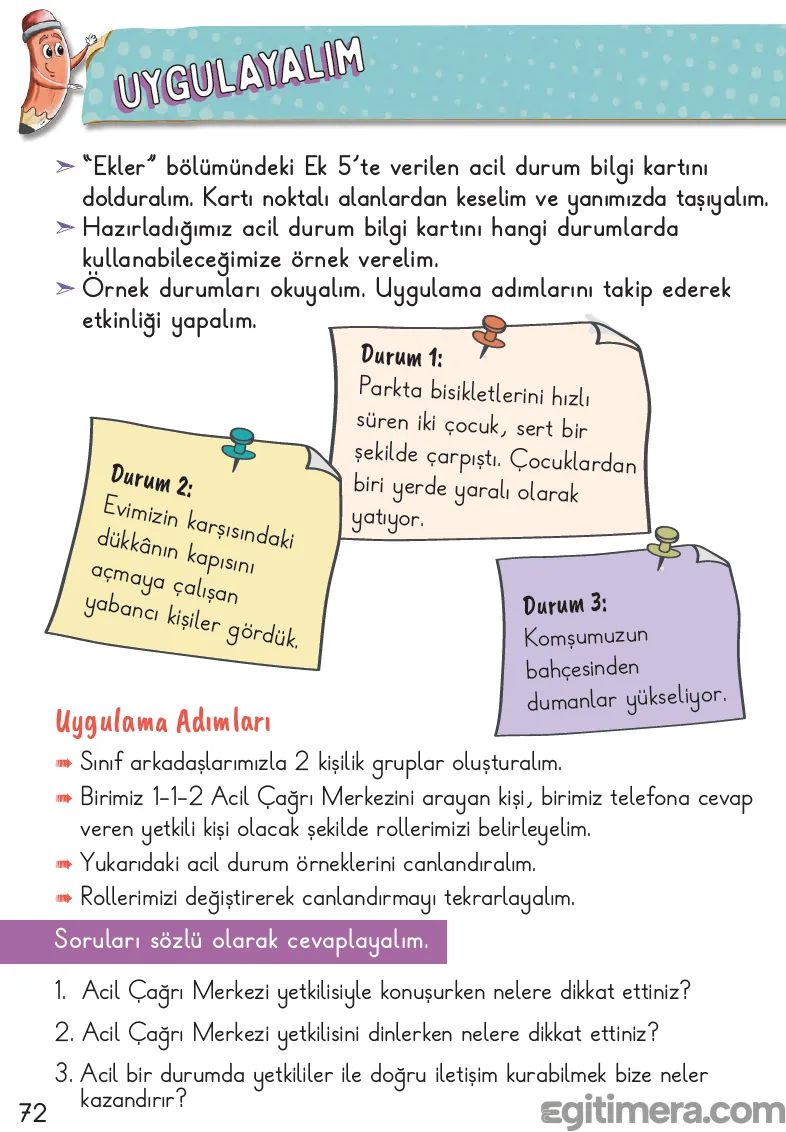 UYGULAYALIM
➣ “Ekler” bölümündeki Ek 5’te verilen acil durum bilgi kartını
dolduralım. Kartı noktalı alanlardan keselim ve yanımızda taşıyalım.
➣ Hazırladığımız acil durum bilgi kartını hangi durumlarda
kullanabileceğimize örnek verelim.
➣ Örnek durumları okuyalım. Uygulama adımlarını takip ederek
etkinliği yapalım.
Durum 1:
Parkta bisikletlerini hızlı
süren iki çocuk, sert bir
şekilde çarpıştı. Çocuklardan
biri yerde yaralı olarak
yatıyor.
Durum 2:
Evimizin karşısındaki
dükkânın kapısını
açmaya çalışan
yabancı kişiler gördük.
Durum 3:
Komşumuzun
bahçesinden
dumanlar yükseliyor.
Uygulama Adımları
➠ Sınıf arkadaşlarımızla 2 kişilik gruplar oluşturalım.
➠ Birimiz 1-1-2 Acil Çağrı Merkezini arayan kişi, birimiz telefona cevap
veren yetkili kişi olacak şekilde rollerimizi belirleyelim.
➠ Yukarıdaki acil durum örneklerini canlandıralım.
➠ Rollerimizi değiştirerek canlandırmayı tekrarlayalım.
Soruları sözlü olarak cevaplayalım.
1. Acil Çağrı Merkezi yetkilisiyle konuşurken nelere dikkat ettiniz?
2. Acil Çağrı Merkezi yetkilisini dinlerken nelere dikkat ettiniz?
3. Acil bir durumda yetkililer ile doğru iletişim kurabilmek bize neler
kazandırır?
72
egitimera.com